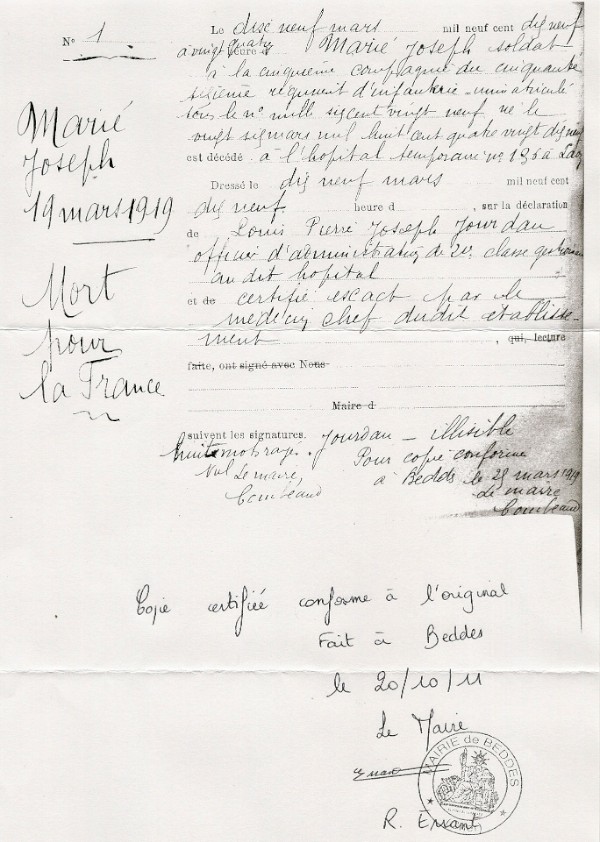 N° 1
Marié
Joseph
19 mars 1919
Mort
pour
la France
Le dise neuf mars mil neuf cent dix neuf
à vingt quatre heure s Marié Joseph soldat
à la cinquième compagnie du cinquante
sixième régiment d'infanterie immatriculé
sous le n° mille six cent vingt neuf né le
vingt six mars mil huit cent quatre vingt dix
est décédé à l'hopital temporaire n° 136 à
Dressé le dix neuf mars mil neuf cent
dix neuf heure d , sur la déclaration
de Louis Pierre Joseph Jourdan
officier d'administration de 2e classe gestionnaire
au dit hopital
et de certifié exact par le
médecin chef dudit établisse-
ment , qui, lecture
faite, ont signé avec Nous
Maire d
suivent les signatures. Jourdan - illisible
huit mots rayés. Pour copie conforme
Nul Le maire, à Bedds le 29 mars 1919
Combeaud Le maire
Combeaud
Copie certifiée conforme à l'original
Fait à Beddes
le 20/10/11
Le Maire
MAIRIE de BEDDES
R. Ersant